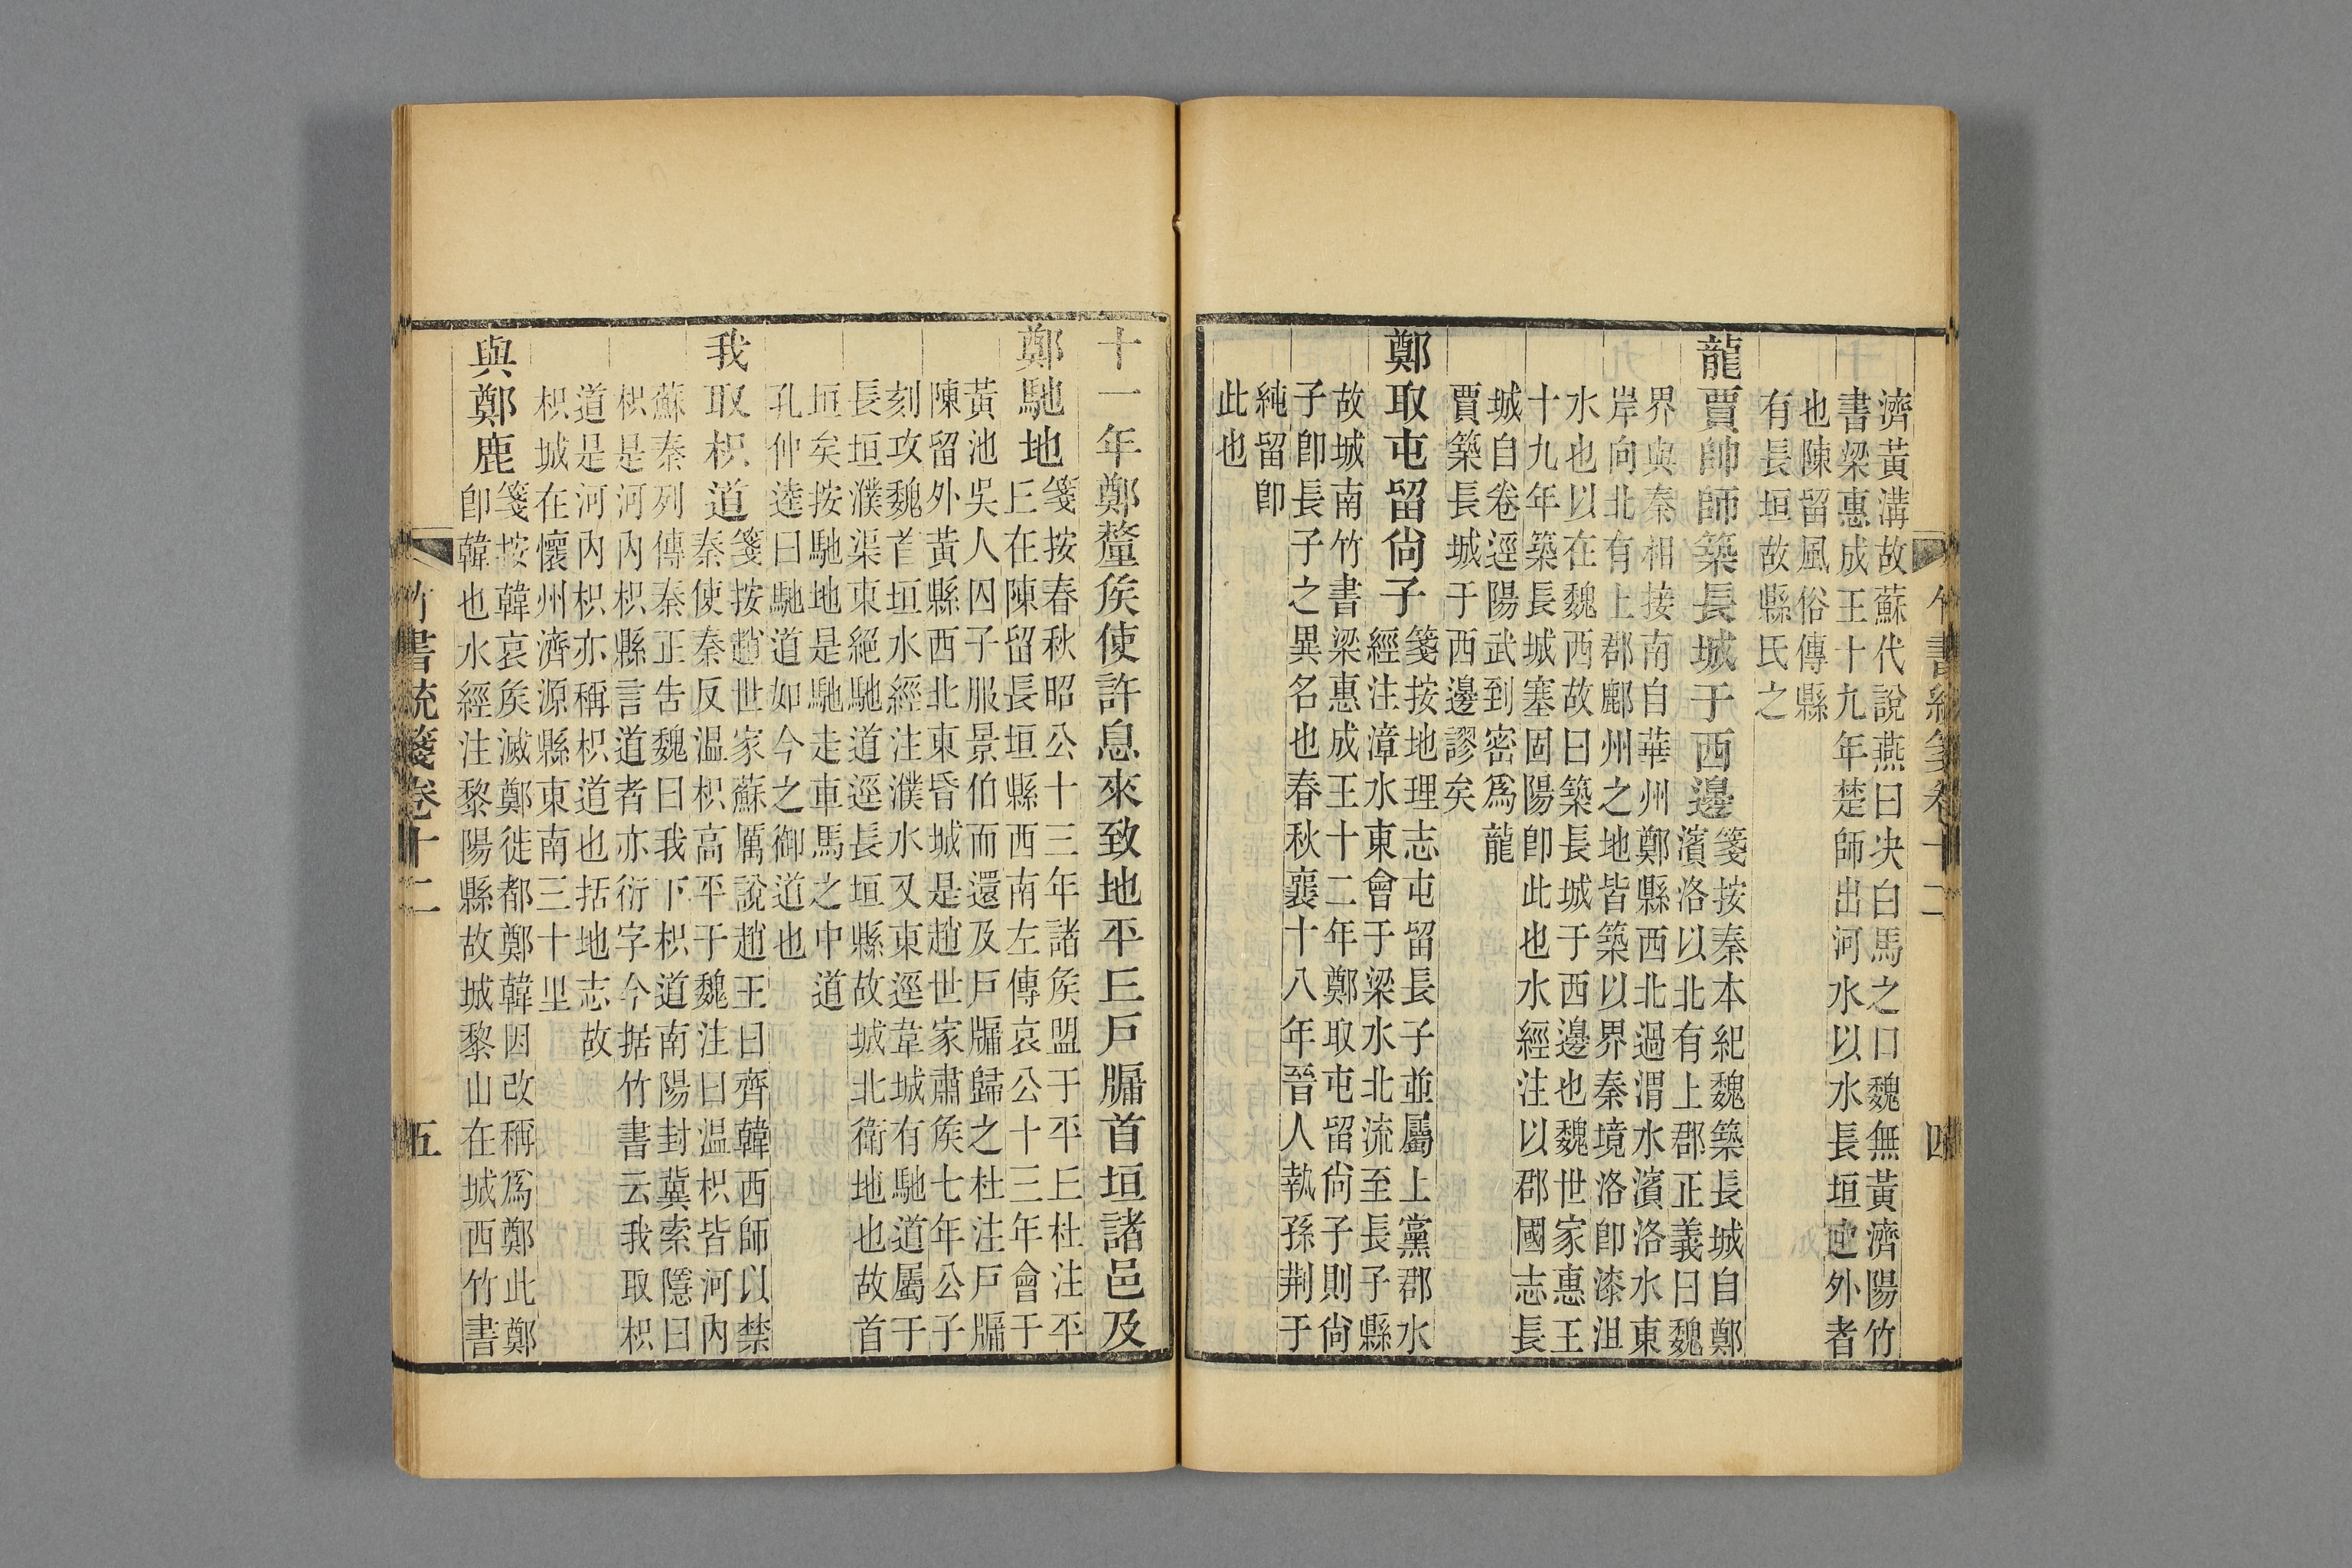 濟黃溝故蘇代說燕曰决白馬之口魏無黃濟陽竹
書梁惠成王十九年楚師出河水以水長垣之外者
也陳留風俗傳縣
有長垣故縣氏之
龍賈帥師築長城于西邊
箋按秦本紀魏築長城自鄭
濱洛以北有上郡正義曰魏
界與秦相接南自華州鄭縣西北過渭水濱洛水東
岸向北有上郡鄜州之地皆築以界秦境洛卽漆沮
水也以在魏西故曰築長城于西邊也魏世家惠王
十九年築長城塞固陽卽此也水經注以郡國志長
城自卷逕陽武到密爲龍
賈築長城于西邊謬矣
鄭取屯留尙子
箋按地理志屯留長子並屬上黨郡水
經注漳水東會于梁水北流至長子縣
故城南竹書梁惠成王十二年鄭取屯留尙子則尙
子卽長子之異名也春秋襄十八年晉人執孫荆于
純留卽
此也
竹書統箋卷十二
四
十一年鄭釐矦使許息來致地平丘戶牖首垣諸邑及
鄭馳地
箋按春秋昭公十三年諸矦盟于平丘杜注平
丘在陳留長垣縣西南左傳哀公十三年會于
黃池吳人囚子服景伯而還及戶牖歸之杜注戶牖
陳留外黃縣西北東昏城是趙世家肅矦七年公子
刻攻魏首垣水經注濮水又東逕韋城有馳道屬于
長垣濮渠東絕馳道逕長垣縣故城北衞地也故首
垣矣按馳地是馳走車馬之中道
孔仲逵曰馳道如今之御道也
我取枳道
箋按趙世家蘇厲說趙王曰齊韓西師以禁
秦使秦反温枳高平于魏注曰温枳皆河內
蘇秦列傳秦正告魏曰我下枳道南陽封冀索隱曰
枳是河內枳縣言道者亦衍字今据竹書云我取枳
道是河內枳亦稱枳道也括地志故
枳城在懷州濟源縣東南三十里
與鄭鹿
箋按韓哀矦滅鄭徙都鄭韓因改稱爲鄭此鄭
卽韓也水經注黎陽縣故城黎山在城西竹書
竹書統箋卷十二
五